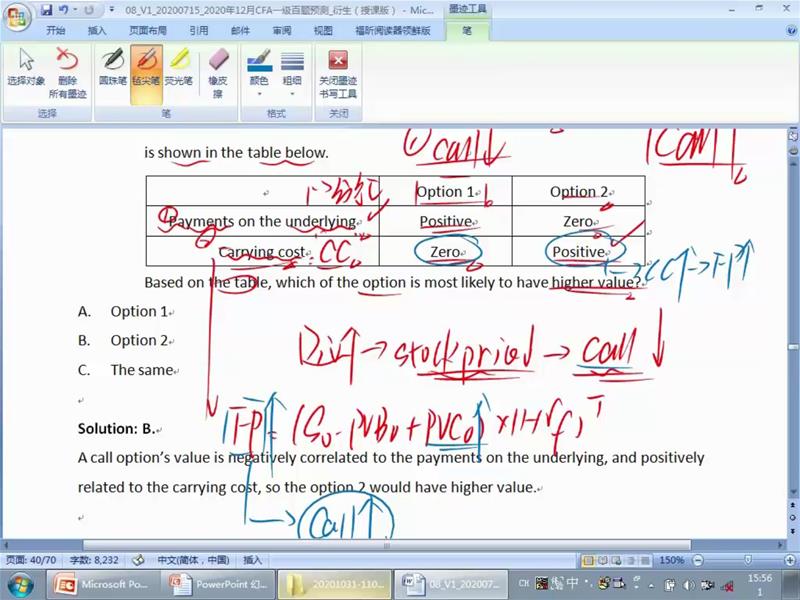 08_V1_20200715_2020年12月CFA一级百题预测_衍生（授课版） - Mic...
墨迹工具
开始 插入 页面布局 引用 邮件 审阅 视图 福昕阅读器领鲜版 笔
选择对象 删除所有墨迹 圆珠笔 毡尖笔 荧光笔 橡皮擦 颜色 粗细 关闭墨迹书写工具
选择 笔 格式 关闭
is shown in the table below.
① call↓
call
Option 1 Option 2
Payments on the underlying Positive Zero
Carrying cost CC Zero Positive
CC↑→FP↑
Based on the table, which of the option is most likely to have higher value?
A. Option 1
B. Option 2
C. The same
Div↑→stock price↓→call↓
Solution: B.
FP↑=(S0-PVB0+PVC0)×(1+rf)^T
A call option's value is negatively correlated to the payments on the underlying, and positively
related to the carrying cost, so the option 2 would have higher value.
call↑
页面: 40/70 字数: 8,232 中文(简体，中国) 插入 150%
Microsoft Po... PowerPoint 幻... 20201031-110... 08_V1_202007... CH 中 15:56